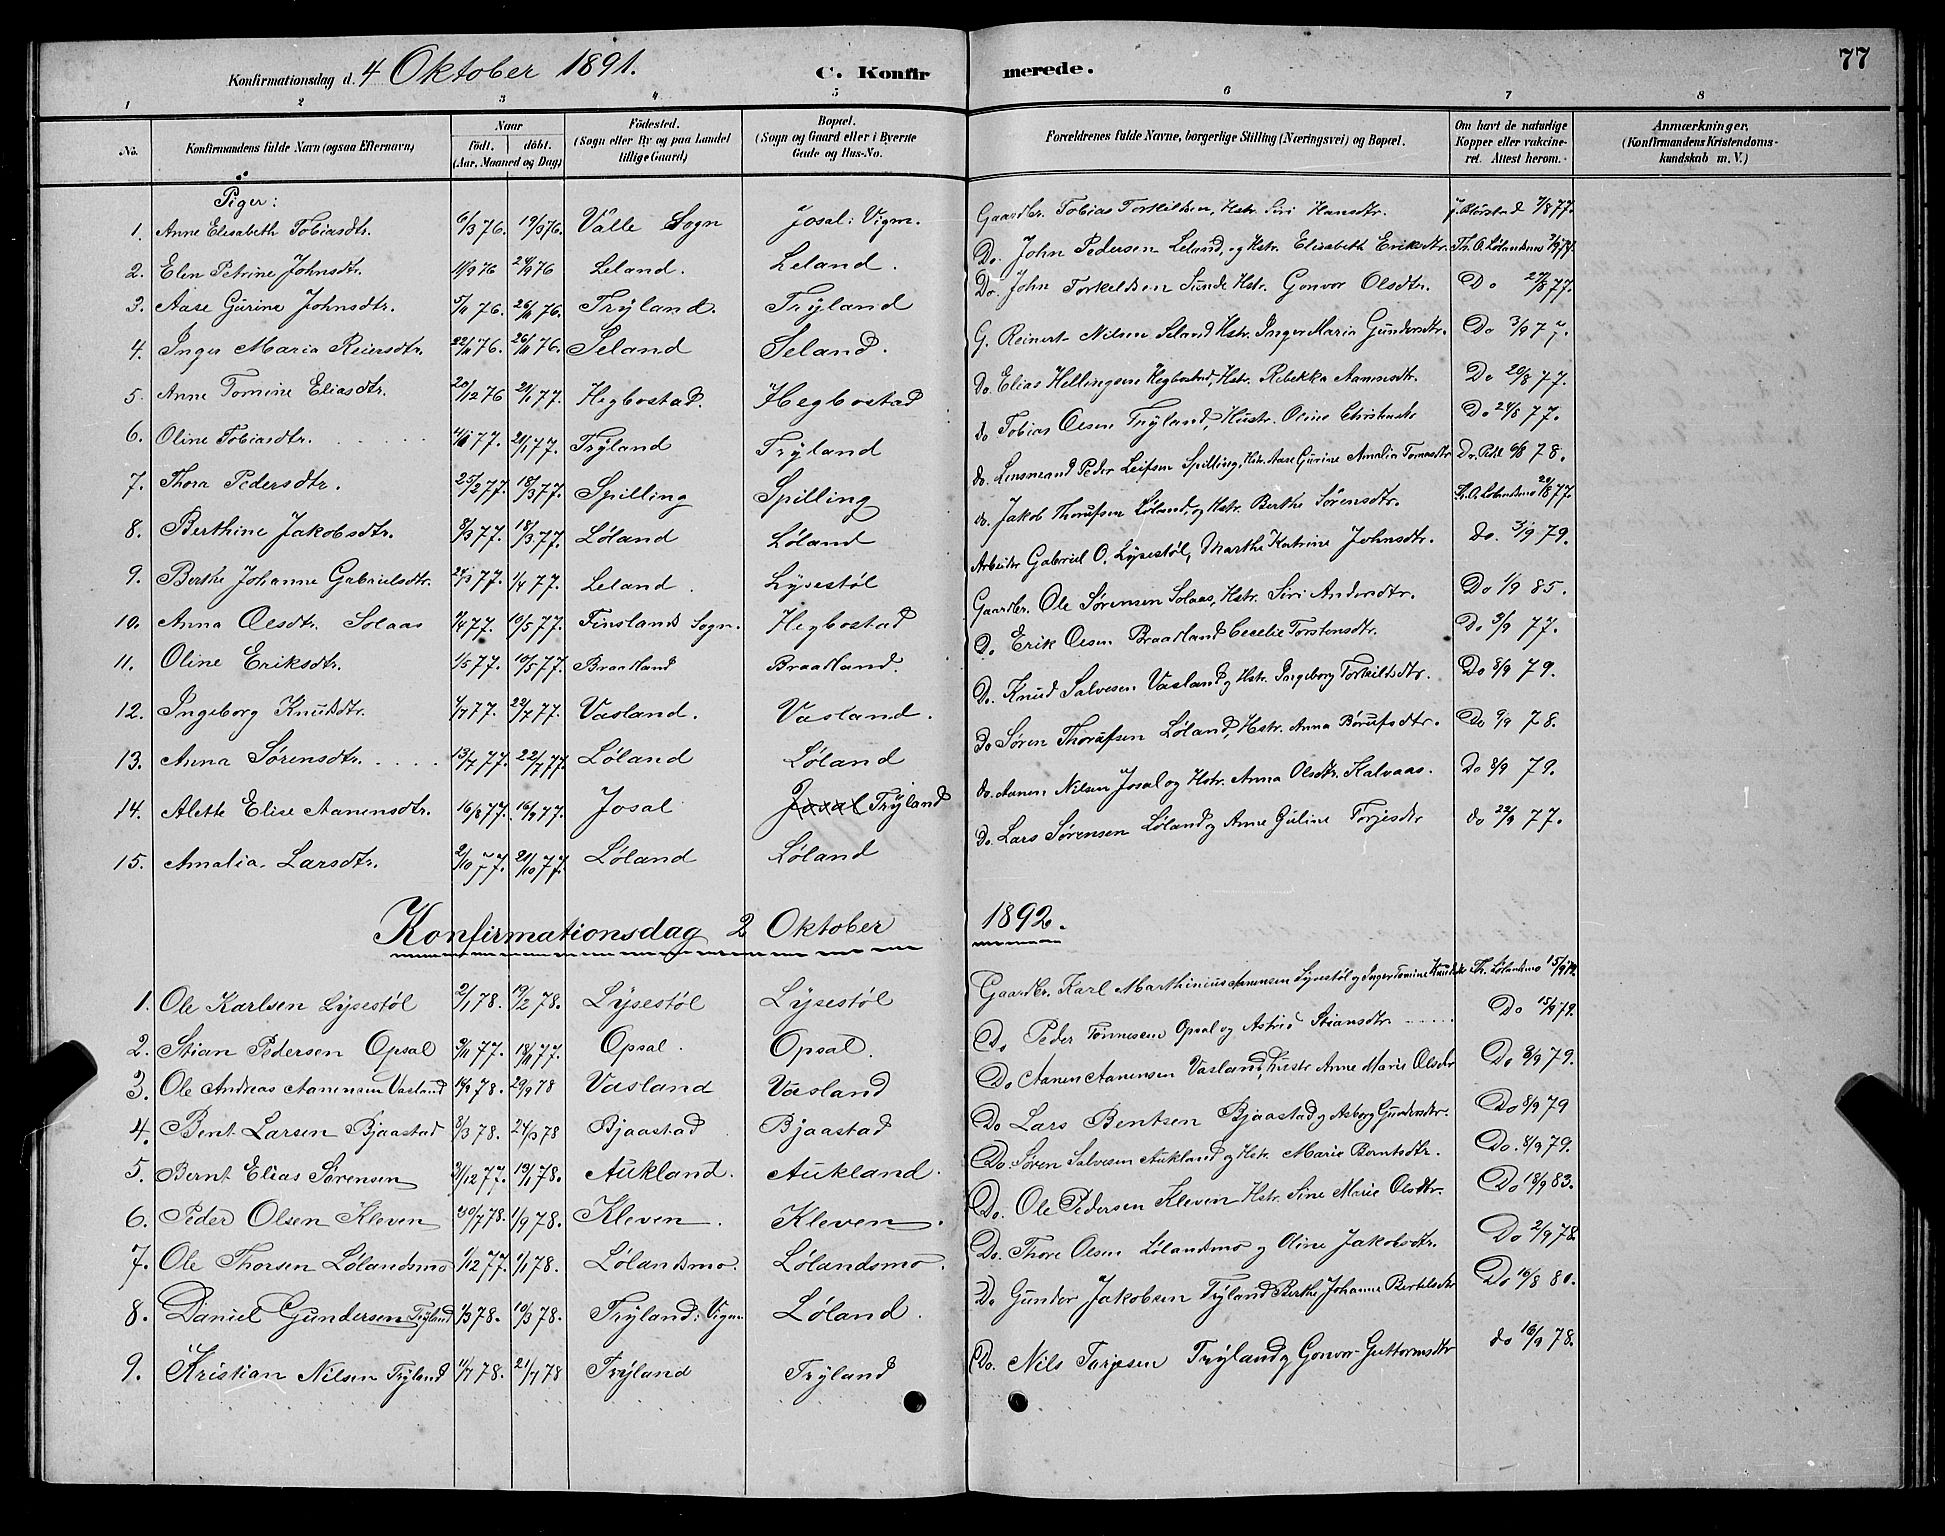 Konfirmationsdag d. 4 Oktober 1891. C. Konfirmerede. 77
1 2 3 4 5 6 7 8
No. Konfirmandens fulde Navn (ogsaa Efternavn) Naar født. døbt. (Aar, Maaned og Dag) Födested. (Sogn eller By og paa Landet tillige Gaard) Bopæl. (Sogn og Gaard eller i Byerne Gade og Hus-No. Forældrenes fulde Navne, borgerlige Stilling (Næringsvei) og Bopæl. Om havt de naturlige Kopper eller vakcineret. Attest herom. Anmærkninger. (Konfirmandens Kristendomskundskab m. V.)
Piger:
1. Anne Elisabeth Tobiasdtr. 6/3 76. 19/3 76. Valle Sogn Josal: Vigm. Gaardbr. Tobias Torkildsen, Hstr. Siri Hansdtr. 7/8 77.
2. Elen Petrine Johnsdtr. 11/9 76 24/9 76 Leland. Leland. Do. John Pedersen Leland, og Hstr. Elisabeth Eriksdtr. Th. O. Lølandsmo
3. Aase Gurine Johnsdtr. 5/11 76. 26/11 76. Trÿland. Trÿland Do. John Torkildsen Sunde Hstr. Gonvor Olsdtr. Do 27/8 77.
4. Inger Maria Reiersdtr. 22/11 76. 26/11 76. Seland Seland. G. Reinert Nilsen Seland Hstr. Inger Maria Gundersdtr. Do 3/9 77.
5. Anne Tomine Eliasdtr. 20/12 76 21/1 77. Hegbostad. Hegbostad Do. Elias Hellingsen Hegbostad, Hstr. Rebekka Aanensdtr. Do 20/8 77.
6. Oline Tobiasdtr. 4/1 77. 21/1 77. Trÿland Trÿland do Tobias Olsen Trÿland, Hustr. Oline Do 24/8 77.
7. Thora Pedersdtr. 25/2 77. 18/3 77. Spilling Spilling do. Lensmand Peder Leifsen Spilling, Hstr. Aase Gurine Amalia Tomasdtr 78.
8. Berthine Jakobsdtr. 8/3 77. 18/3 77. Løland Løland do. Jakob Thorufsen Løland, og Hstr. Berthe Sørensdtr. Th. O. Lølandsmo 20/8 77.
9. Berthe Johanne Gabrielsdtr. 24/3 77. 1/4 77. Leland. Lÿsestøl Arbeider Gabriel O. Lÿsestøl, Marthe Katrine Johnsdtr. do. 3/9 79.
10. Anna Olsdtr. Solaas 77. 10/5 77. Finslands Sogn. Hegbostad Gaardbr. Ole Sørensen Solaas, Hstr. Siri Andersdtr. Do 1/9 85.
11. Oline Eriksdtr. 1/5 77. 10/5 77. Braadland Braadland. Do Erik Olsen Braadland Cecelie Torstensdtr. Do 3/9 77.
12. Ingeborg Knudsdtr. 77. 22/7 77. Vasland. Vasland. Do. Knud Salvesen Vasland og Hstr. Ingeborg Torkildsdtr. Do 8/9 79.
13. Anna Sørensdtr. 13/7 77. 22/7 77. Løland Løland Do Søren Thorufsen Løland, Hstr. Anna Børufsdtr. Do 9/9 78.
14. Alette Elise Aanensdtr. 16/8 77. 16/9 77. Josal Josal Trÿland do. Aanen Nilsen Josal og Hstr. Anna Olsdtr. Kalvaas. Do 8/9 79.
15. Amalia Larsdtr. 2/10 77. 21/10 77. Løland Løland Do. Lars Sørensen Løland og Anne Guline Torjesdtr do 77.
Konfirmationsdag 2 Oktober 1892.
1. Ole Karlsen Lÿsestøl 2/1 78. 19/2 78. Lÿsestøl Lÿsestøl Gaardbr. Karl Marthinius Aanensen Lÿsestøl og Inger Tomine Th. Lølandsmo 15/9 79.
2. Stian Pedersen Opsal 9/11 77. 18/11 77. Opsal. Opsal. Do Peder Tönnesen Opsal og Astrid Stiansdtr. Do 15/9 79.
3. Ole Andreas Aanensen Vasland 78. 29/9 78 Vasland Vasland Do Aanen Aanensen Vasland, Hustr Anne Marie Olsdtr Do 8/9 79.
4. Bent Larsen Bjaastad 8/3 78. 24/3 78 Bjaastad Bjaastad Do Lars Bentsen Bjaastad og Asborg Gundersdtr. Do 8/9 79
5. Bernt Elias Sørensen 31/12 77. 19/1 78. Aukland. Aukland. Do. Søren Salvesen Aukland og Hstr. Marie Berntsdtr. Do. 8/9 79.
6. Peder Olsen Kleven 30/7 78. 1/9 78. Kleven. Kleven. Do. Ole Pedersen Kleven Hstr. Sine Marie Olsdtr. Do 18/9 83.
7. Ole Thorsen Lølandsmo 1/12 77. 1/1 78. Lølandsmo. Lølandsmo. Do. Thore Olsen Lølandsmo og Oline Jakobsdtr. Do 2/9 78.
8. Daniel Gundersen Trÿland 1/3 78. 10/3 78. Trÿland: Vigm Løland. Do Gunder Jakobsen Trÿland Berthe Johanne Bertelsdtr Do 16/8 80.
9. Kristian Nilsen Trÿland 11/7 78. 21/7 78 Trÿland Trÿland Do. Nils Tarjesen Trÿland og Gonvor Guttormsdtr do 16/9 78.